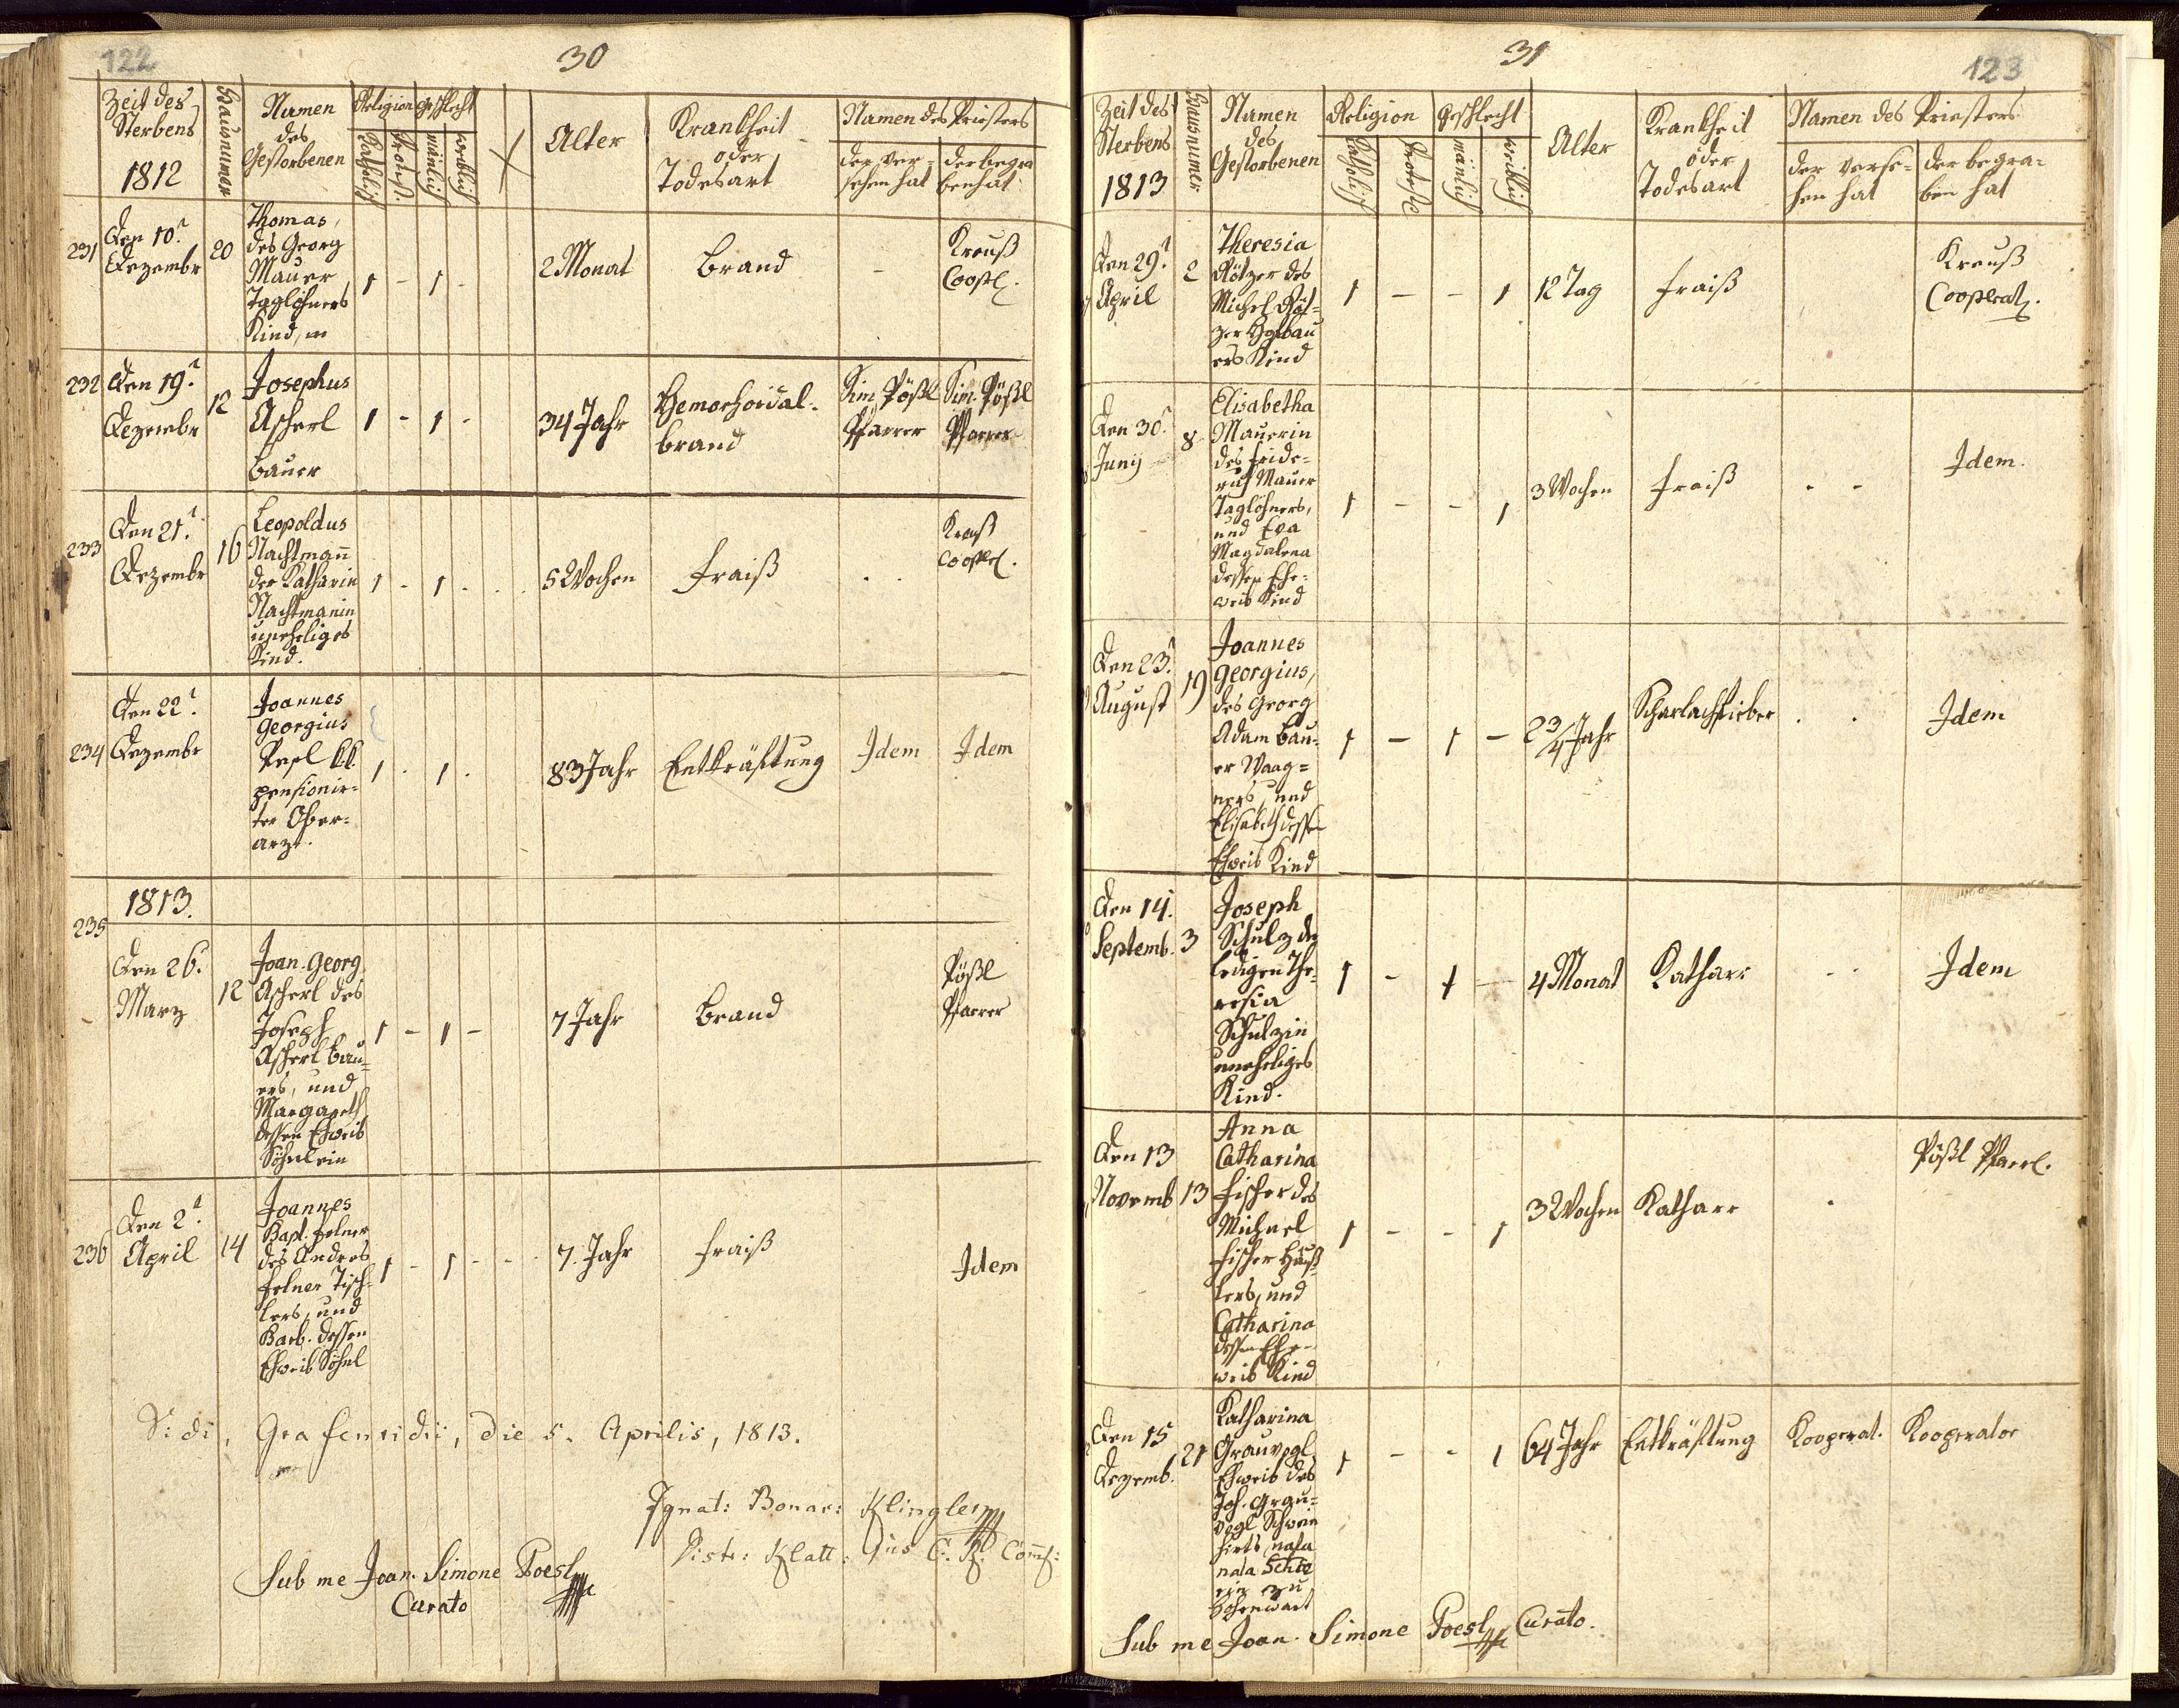 122
30
Zeit des
Sterbens
1812
Hausnumer
Namen
des
Gestorbenen
Religion
Katholisch
Protest.
Geschlecht
mänlich
weiblich
Alter
Krankheit
oder
Todesart
Namen des Priesters
der ver=
sehen hat
der begra
ben hat
231
Den 10t
Dezembr
20
Thomas,
des Georg
Mauer
Taglöhners
Kind, m
1 - 1 -
2 Monat
Brand
-
Kreuß
Coop.
232
Den 19t
Dezembr
12
Josephus
Ascherl
Bauer
1 - 1 -
34 Jahr
Hemorhoidal-
brand
Sim. Pößl
Pfarrer
Sim. Pößl
Pfarrer
233
Den 21t
Dezembr
16
Leopoldus
Nachtmann
der Katharin
Nachtmanin
uneheliges
Kind.
1 - 1 -
5 Wochen
Fraiß
Kreuß
Coop.
234
Den 22t
Dezembr
Joannes
Georgius
Pesl kk.
pensionir=
ter Ober=
arzt.
1 - 1 -
83 Jahr
Entkräftung
Idem
Idem
1813.
235
Den 26t
Marz
12
Joan. Georg
Ascherl des
Joseph
Ascherl Bau=
ers, und
Margareth
dessen Eheweib
Söhnlein
1 - 1 -
7 Jahr
Brand
Pößl
Pfarrer
236
Den 2t
April
14
Joannes
Bapt. Felner
des Andreas
Felner Tisch-
lers, und
Barb. dessen
Eheweib Söhnl
1 - 1 - -
7. Jahr
Fraiß
Idem
Vidi, Grafenridii, die 5. Aprilis, 1813.
Ignat: Bonav: Klingler
Distr: Klatt:
Sub me Joan. Simone Poesl
Curato
31
123
Zeit des
Sterbens
1813
Hausnumer
Namen
des
Gestorbenen
Religion
Katholisch
Protest
Geschlecht
mänlich
weiblich
Alter
Krankheit
oder
Todesart
Namen des Priesters
der verse-
hen hat
der begra-
ben hat
Den 29t
April
2
Theresia
Rötzer des
Michel Röt=
zer
ers Kind
1 - - 1
12 Tag
Fraiß
Kreuß
Cooperat.
Den 30t
Junij
8
Elisabetha
Mauerin
des Fride=
rich Mauer
Taglöhners,
und Eva
Magdalena
dessen Ehe=
weib Kind
1 - - 1
3 Wochen
Fraiß
- -
Idem.
Den 23t
August
19
Joannes
Georgius,
des Georg
Adam Bau=
er Waag=
ners, und
Elisabeth dessen
Eheweib Kind
1 - 1 -
2 3/4 Jahr
Scharlachfieber
Idem
Den 14.
Septemb.
3
Joseph
Schulz der
ledigen The=
resia
Schulzin
uneheliges
Kind.
1 - 1 -
4 Monat
Katharr
Idem
Den 13
Novemb
13
Anna
Catharina
Fischer des
Michael
Fischer Häuß
lers, und
Catharina
dessen Ehe-
weib Kind
1 - - 1
3 Wochen
Katharr
Pößl Pfarr.
Den 15
Dezemb.
21
Katharina
Grauvogl
Eheweib des
Joh. Grau=
vogl Schwein
hirts,
nata
zu
1 - - 1
64 Jahr
Entkräftung
Kooperat.
Kooperator
Sub me Joan. Simone Poesl Curato.